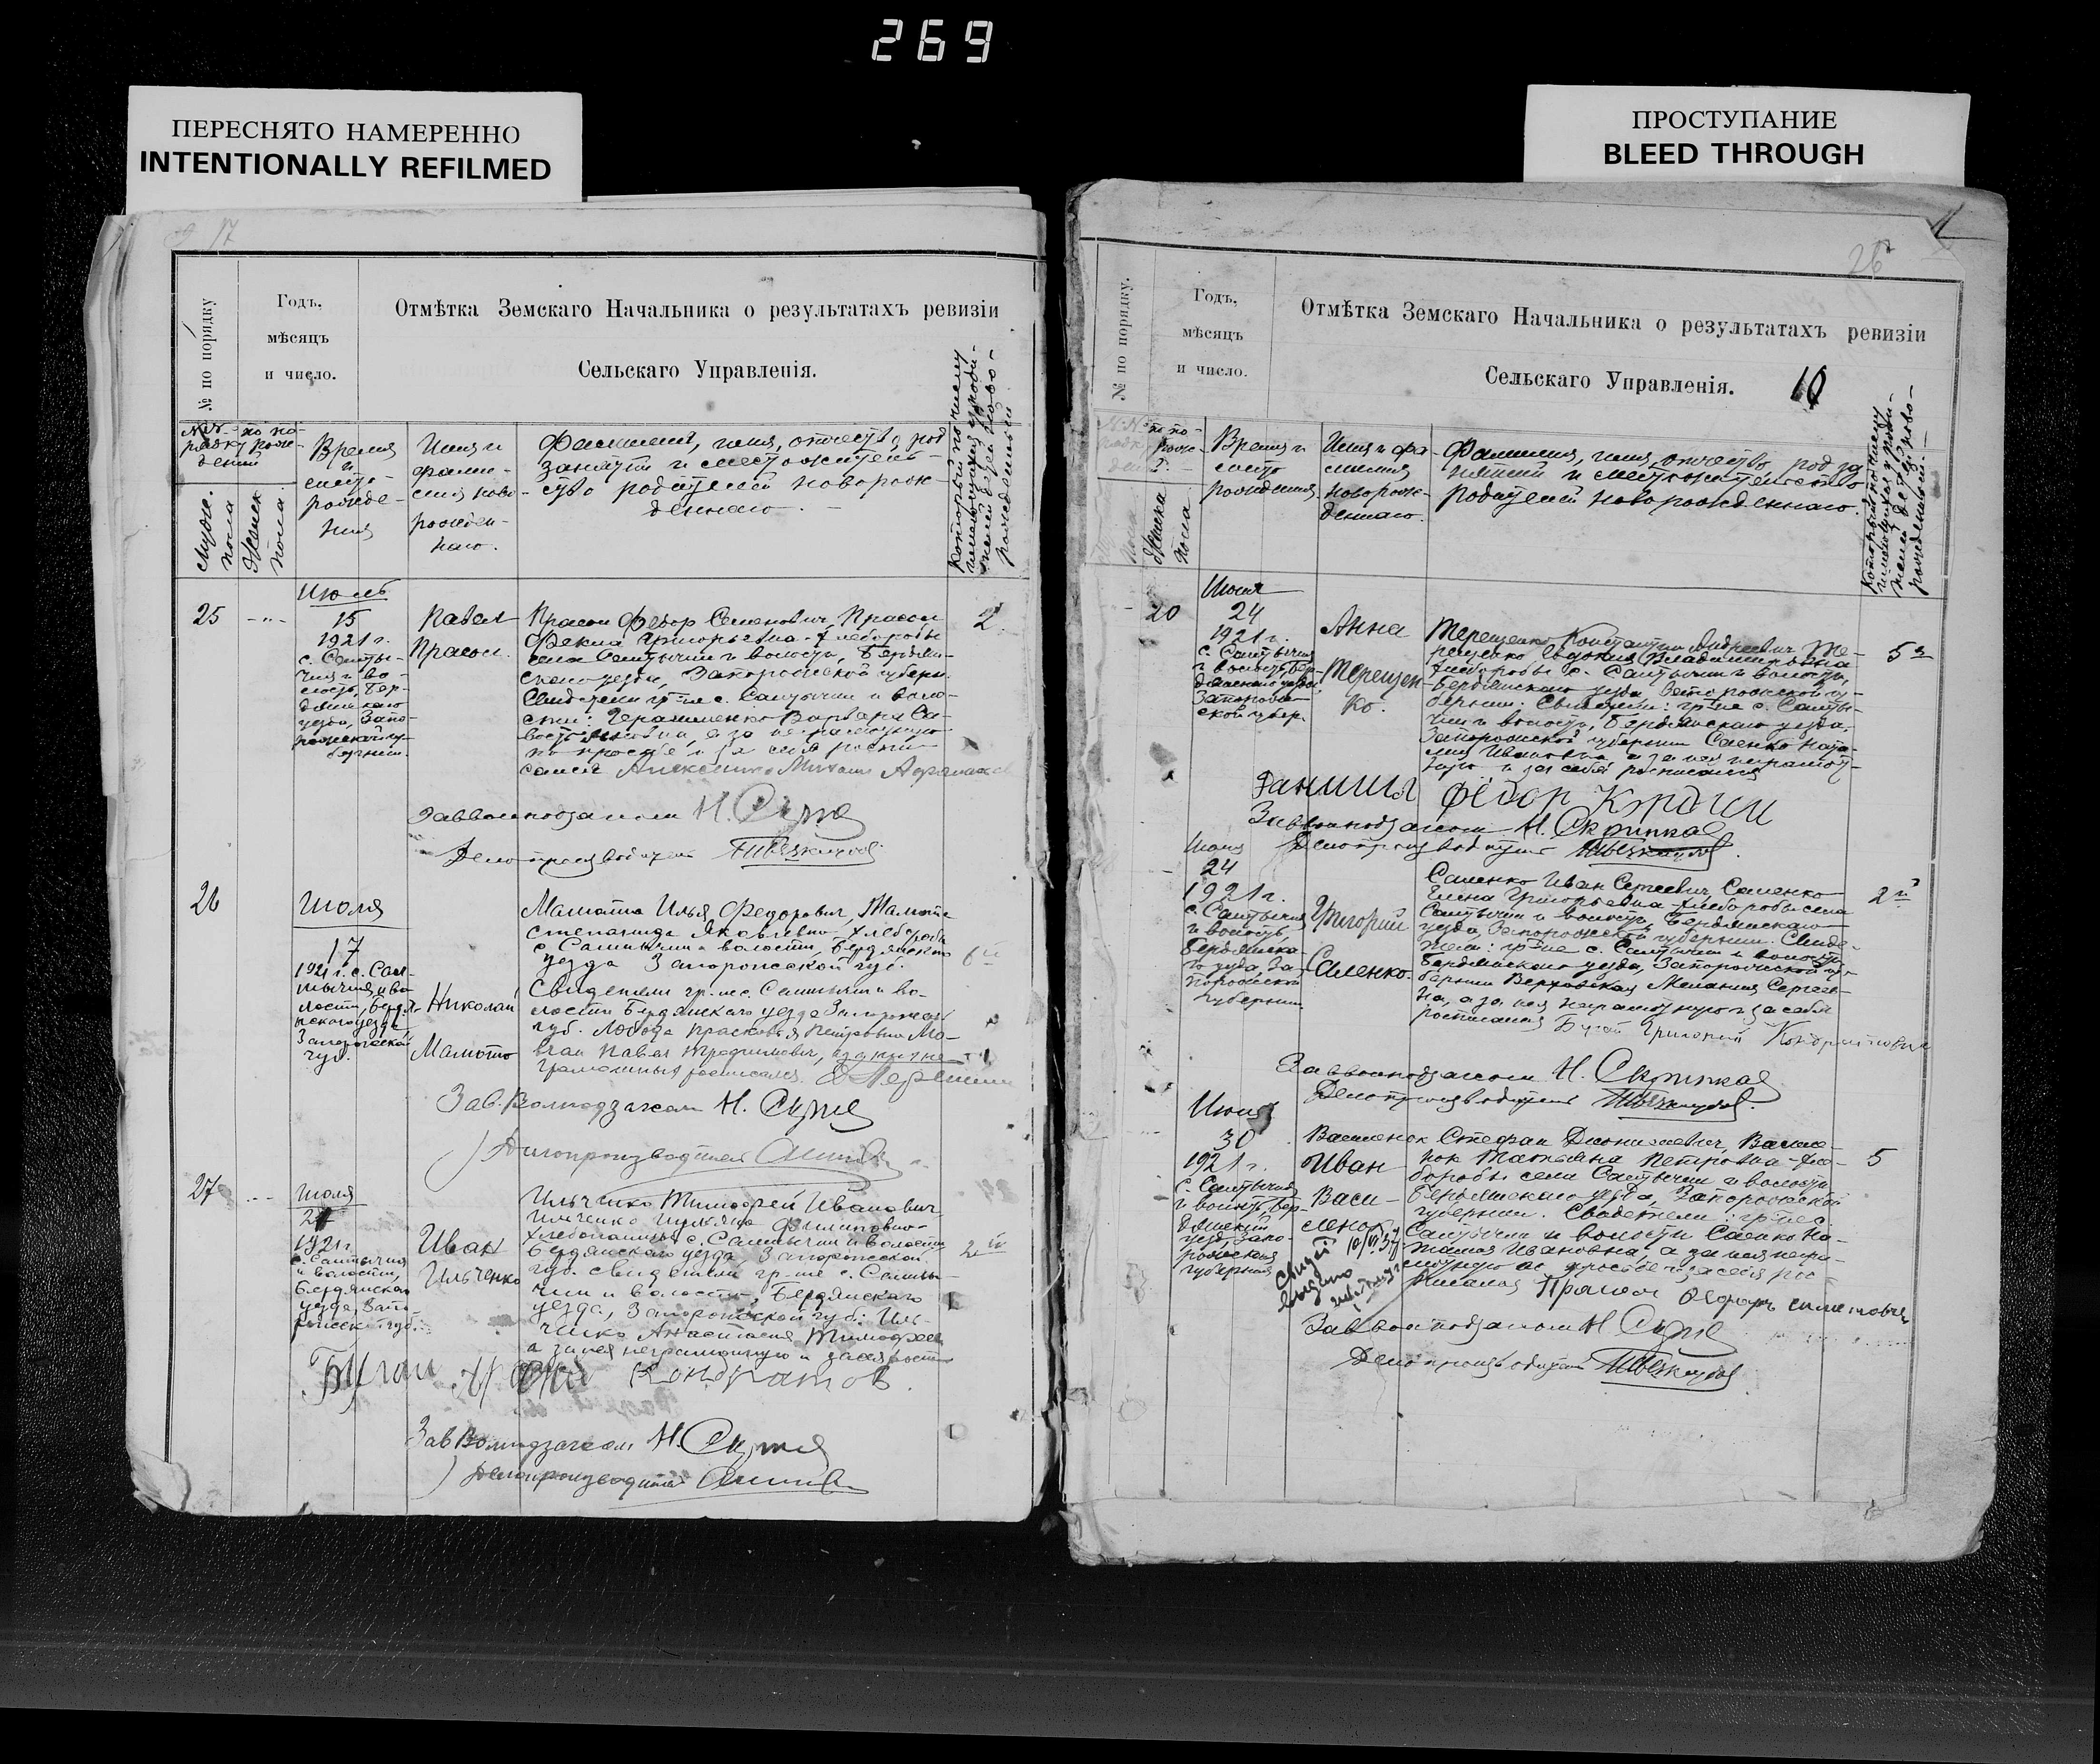 269
ПЕРЕСНЯТО НАМЕРЕННО
INTENTIONALLY REFILMED
ПРОСТУПАНИЕ
BLEED THROUGH
17
№ по порядку
Годъ,
мѣсяцъ
и число.
Отмѣтка Земскаго Начальника о результатахъ ревизіи
Сельскаго Управленія.
Мужс.
пола
Женск
пола
Время
и
место
рожде-
ния
Имя и
фами-
лия ново-
рожден-
наго.
Фамилия, имя, отчество, род
занятий и местожитель-
ство родителей новорож-
деннаго.
Который по числу
имеющихся у роди-
телей детей ново-
рожденный
25
Июль
15
1921 г.
с. Салты-
чия и во-
лость, Бер-
дянскаго
уезда, Запо-
рожской гу-
бернии.
Павел
Прасол
Прасол Федор Семенович, Прасол
Фекла Григорьевна - хлеборобы
села Салтычии и волости, Бердян-
скаго уезда, Запорожской губерн.
Свидетели гр-не с. Салтычии и воло-
сти: Герасименко Варвара Са-
2
Завволподзагсом Н. Скрипка
Делопроизводитель
26
Июля
17
1921 г. с. Сал-
тычия и во
лости, Бердя-
нского уезда
Запорожской
губ.
Николай
Мамото
Илья Федорович,
Степанида Яковлевна - хлеборобы
с. Салтычии и волости, Бердянского
уезда Запорожской губ.
Свидетели гр-не с. Салтычии и во-
лости Бердянского уезда Запорожской
губ. Лобода Прасковья Петровна Мо-
Павел Трофимович, а за них не-
грамотных расписался
6й
Зав. Волподзагсом Н. Скрипка
Делопроизводитель
27
Июля
1921 г
с. Салтычия
и волости,
Бердянского
уезда, Запо-
рожск. губ.
Иван
Ильченко
Ильченко Тимофей Иванович
Ильченко Ульяна Филиповна-
хлебопашцы с. Салтычии и волости
Бердянского уезда, Запорожской
губ. свидетели гр-не с. Салты-
чии и волости, Бердянского
уезда, Запорожской губ. Иль-
ченко Анастасия Тимофеев
а за нея неграмотную и за себя роспис
2й
Бугай Кондратов
Зав Волподзагсом Н. Скрипка
Делопроизводитель
26
№ по порядку.
Годъ,
мѣсяцъ
и число.
Отмѣтка Земскаго Начальника о результатахъ ревизіи
Сельскаго Управленія.
10
Женска
пола
Время и
место
рождения
Имя и фа-
милия
новорож-
деннаго.
Фамилия, имя, отчество, род за
нятий и местожительство
родителей новорожденнаго.
Который по числу
имеющихся у роди-
телей детей ново-
рожденный.
20
Июня
24
1921 г.
с. Салтычия
и волость, Бер-
дянскаго уезда
Запорож-
ской губер.
Анна
Терещен-
ко.
Терещенко Константин Андреевич, Те-
рещенко Евдокия Владимировна
хлеборобы с. Салтычии и волости,
Бердянскаго уезда Запорожской гу-
бернии. Свидетели: гр-не с. Салты-
чии и волости, Бердянскаго уезда,
Запорожской губернии Саенко Ната-
лия Ивановна а за нея неграмот-
ную и за себя росписался
5й
Даниил Фёдор Кэрдин
Завволподзагсом Н. Скрипка
Делопроизводитель
Июня
24
1921 г.
с. Салтычия
и волость
Бердянска-
го уезда, За-
порожской
губернии
Григорий
Саленко.
Саленко Иван Сергеевич, Саленко
Елена Григорьевна - хлеборобы села
Салтычии и волости, Бердянскаго
уезда, Запорожской губернии. Свиде-
тели: гр-не с. Салтычии и волости
Бердянскаго уезда, Запорожской гу-
бернии Верховская Мелания Сергеев-
на, а за нея неграмотную и за себя
росписался Бугай Григорий Кондратович
2й
Завволподзагсом Н. Скрипка
Делопроизводитель
Июня
30
1921 г.
с. Салтычия
и волость, Бер-
дянский
уезд, Запо-
рожская
губерния
Иван
Васи-
ленок
Василенок Стефан Дионисиевич, Васile-
нок Татьяна Петровна - хле-
боробы села Салтычии и волости
Бердянскаго уезда, Запорожской
губернии. Свидетели: гр-не с.
Салтычии и волости Саенко На-
талия Ивановна, а за нея негра-
мотную по просьбе и за себя рос-
писался Прасол Федор Симеонович
5
Завволподзагсом Н. Скрипка
Делопроизводитель